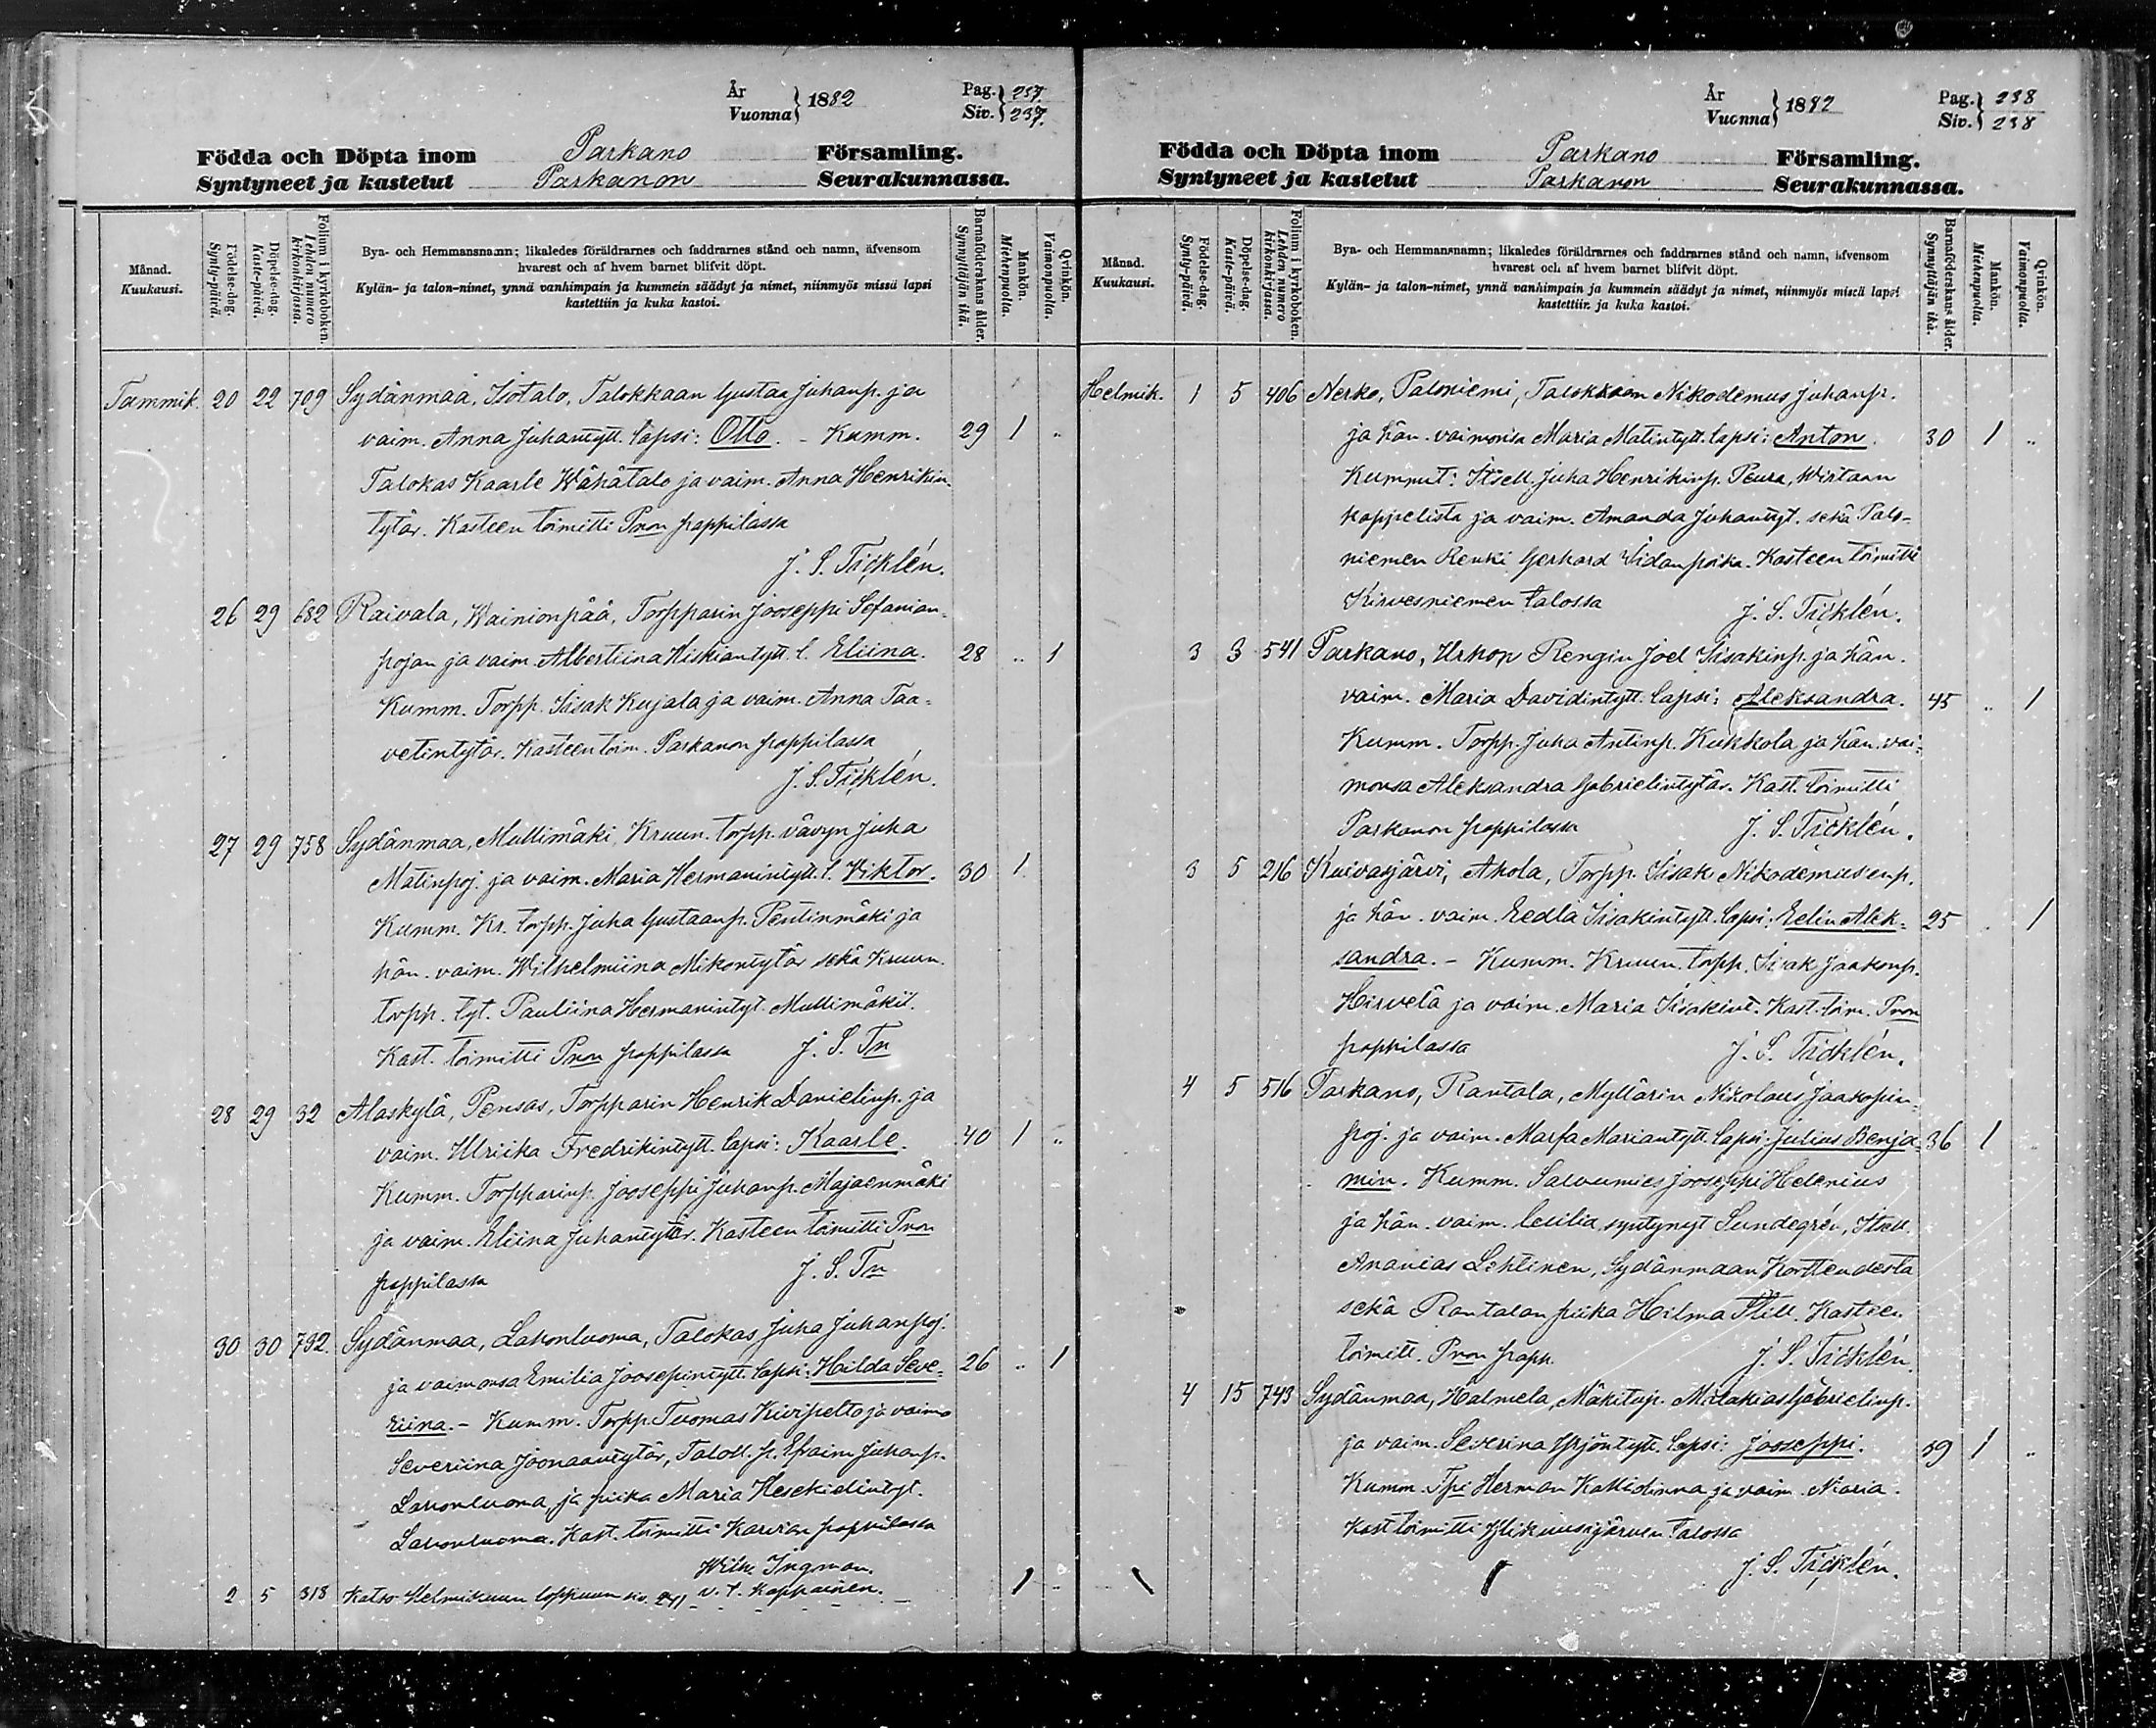 År
Vuonna } 1882
Pag.
Siv. } 237.
237.
Födda och Döpta inom Parkano Församling.
Syntyneet ja kastetut Parkanon Seurakunnassa.
Månad.
Kuukausi.
Födelse-dag.
Synty-päivä.
Döpelse-dag.
Kaste-päivä.
Folium i kyrkoboken.
Lehden numero
kirkonkirjassa.
Bya- och Hemmansnamn; likaledes föräldrarnes och faddrarnes stånd och namn, äfvensom
hvarest och af hvem barnet blifvit döpt.
Kylän- ja talon-nimet, ynnä vanhimpain ja kummein säädyt ja nimet, niinmyös missä lapsi
kastettiin ja kuka kastoi.
Barnaföderskans ålder.
Synnyttäjän ikä.
Mankön.
Miehenpuolta.
Qvinkön.
Vaimonpuolta.
Tammik. 20 22 709 Sydänmaa, Isotalo, Talokkaan Gustaa Juhanp. ja
vaim. Anna Juhantytt. lapsi: Otto. - Kumm. 29 1 "
Talokas Kaarle Wähätalo ja vaim. Anna Henrikin-
tytär. Kasteen toimitti Pnon pappilassa
J. S. Ticklén.
26 29 682 Raivala, Wainionpää, Torpparin Jooseppi Sefanian-
pojan ja vaim. Albertiina Hiskiantytt. l. Eliina. 28 " 1
Kumm. Torpp. Iisak Kujala ja vaim. Anna Taa-
vetintytär. Kasteen toim. Parkanon pappilassa
J. S. Ticklén.
27 29 758 Sydänmaa, Mullimäki, Kruun. torpp. vävyn Juha
Matinpoj. ja vaim. Maria Hermanintytt. l. Viktor. 30 1
Kumm. Kr. torpp. Juha Gustaanp. Pentinmäki ja
hän. vaim. Wilhelmiina Mikontytär sekä Kruun.
torpp. tyt. Pauliina Hermanintyt. Mullimäki.
Kast. toimitti Pnon pappilassa J. S. Tn
28 29 32 Alaskylä, Pensas, Torpparin Henrik Danielinp. ja
vaim. Ulriika Fredrikintytt. lapsi: Kaarle. 40 1 "
Kumm. Torpparinp. Jooseppi Juhanp. Majaenmäki
ja vaim. Eliina Juhantytär. Kasteen toimitti Pnon
pappilassa J. S. Tn
30 30 732. Sydänmaa, Lahonluoma, Talokas Juha Juhanpoj.
ja vaimonsa Emilia Joosepintytt. lapsi: Hilda Seve- 26 " 1
riina. - Kumm. Torpp. Tuomas Kivipelto ja vaimo
Severiina Joonaantytär, Taloll. p. Efraim Juhanp.
Lahonluoma, ja piika Maria Hesekielintyt.
Lahonluoma. Kast. toimitti Karvian pappilassa
Wilh. Ingman.
v. t. Kappalainen.
2 5 318 Katso Helmikuun loppuun siv. 241 1 "
År
Vuonna } 1882
Pag.
Siv. } 238
238
Födda och Döpta inom Parkano Församling.
Syntyneet ja kastetut Parkanon Seurakunnassa.
Månad.
Kuukausi.
Födelse-dag.
Synty-päivä.
Döpelse-dag.
Kaste-päivä.
Folium i kyrkoboken.
Lehden numero
kirkonkirjassa.
Bya- och Hemmansnamn; likaledes föräldrarnes och faddrarnes stånd och namn, äfvensom
hvarest och af hvem barnet blifvit döpt.
Kylän- ja talon-nimet, ynnä vanhimpain ja kummein säädyt ja nimet, niinmyös missä lapsi
kastettiin ja kuka kastoi.
Barnaföderskans ålder.
Synnyttäjän ikä.
Mankön.
Miehenpuolta.
Qvinkön.
Vaimonpuolta.
Helmik. 1 5 406 Nerko, Paloniemi, Talokkaan Nikodemus Juhanp.
ja hän. vaimonsa Maria Matintytt. lapsi: Anton. 30 1 "
Kummit: Itsell. Juha Henrikinp. Peura, Wirtaan
kappelista ja vaim. Amanda Juhantyt. sekä Palo-
niemen Renki Gerhard Widanpoika. Kasteen toimitti
Kirvesniemen talossa J. S. Ticklén.
3 3 541 Parkano, Uskon Rengin Joel Iisakinp. ja hän.
vaim. Maria Davidintytt. lapsi: Aleksandra. 45 " 1
Kumm. Torpp. Juha Antinp. Kukkola ja hän. vai-
monsa Aleksandra Gabrielintytär. Kast. toimitti
Parkanon pappilassa J. S. Ticklén.
3 5 216 Kuivasjärvi, Ahola, Torpp. Iisak Nikodemusenp.
ja hän. vaim. Eedla Iisakintytt. lapsi: Eelin Alek- 25 1
sandra. - Kumm. Kruun. torpp. Iisak Jaakonp.
Hirvelä ja vaim. Maria Iisakint. Kast. toim. Pnon
pappilassa J. S. Ticklén.
4 5 516 Parkano, Rantala, Myllärin Nikolaus Jaakopin-
poj. ja vaim. Marfa Mariantytt. lapsi: Julius Benja- 36 1
min. Kumm. Salvumies Jooseppi Helenius
ja hän. vaim. Cecilia, syntynyt Sundegrén, Itsell.
Ananias Lehtinen, Sydänmaan Korttendesta
sekä Rantalan piika Hilma Still. Kasteen
toimitt. Pnon papp. J. S. Ticklén.
4 15 743 Sydänmaa, Halmela, Mäkitup. Malakias Gabrielinp.
ja vaim. Severina Yrjöntytt. lapsi: Jooseppi. 39 1 "
Kumm. Tpi Herman Kallidinna ja vaim. Maria.
Kast toimitti Ylikuusijärven talossa
J. S. Ticklén.